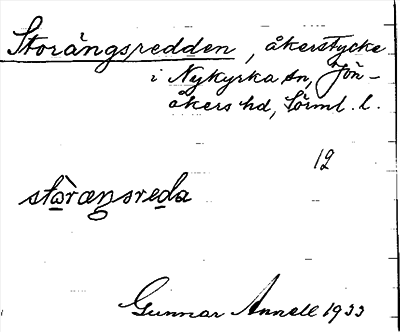 Storängsredden, åkerstycke
i Nykyrka sn, Jön-
åkers hd, Sörml. l.
12
stǫrængsreda
Gunnar Annell 1933